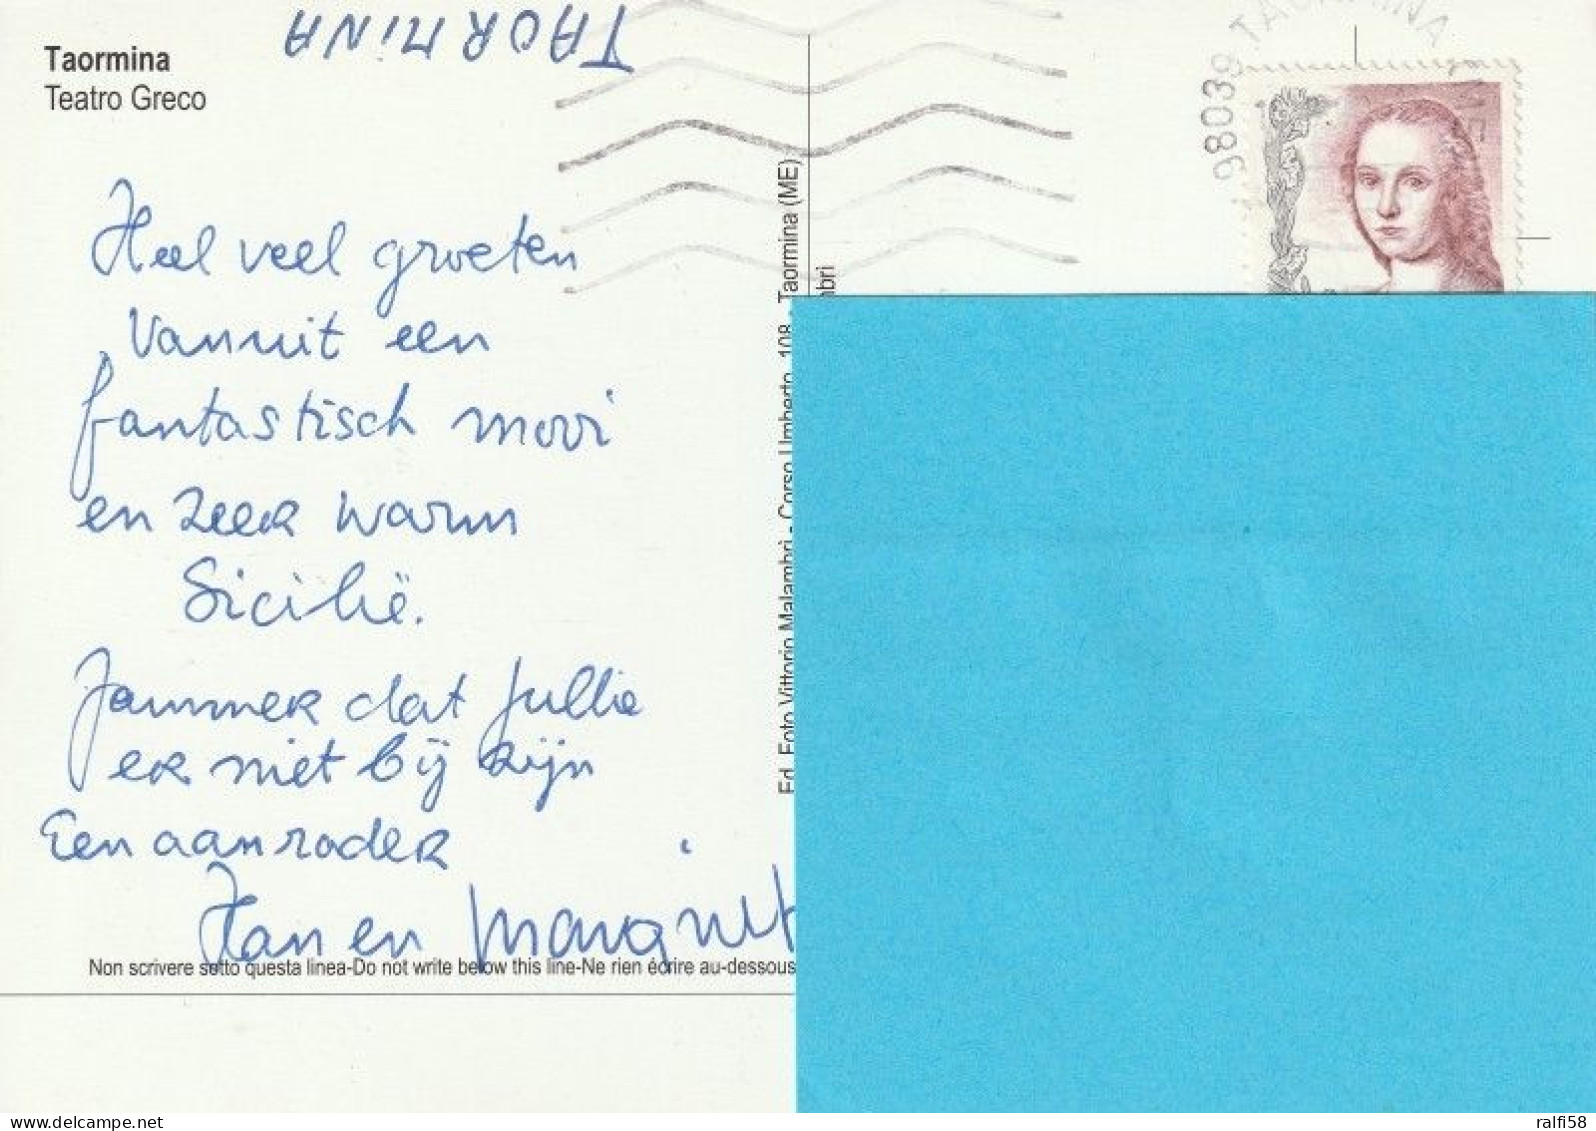 TAORMINA
Taormina
Teatro Greco
98039 TAORMINA
Heel veel groeten
vanuit een
fantastisch mooi
en zeer warm
Sicilië.
Jammer dat jullie
er niet bij zijn
Een aanrader
Han en Margriet
Non scrivere sotto questa linea-Do not write below this line-Ne rien écrire au-dessous
Ed. Foto Vittorio Malambri - Corso Umberto, 108 - Taormina (ME)
mbri
ralfi58
delcampe.net